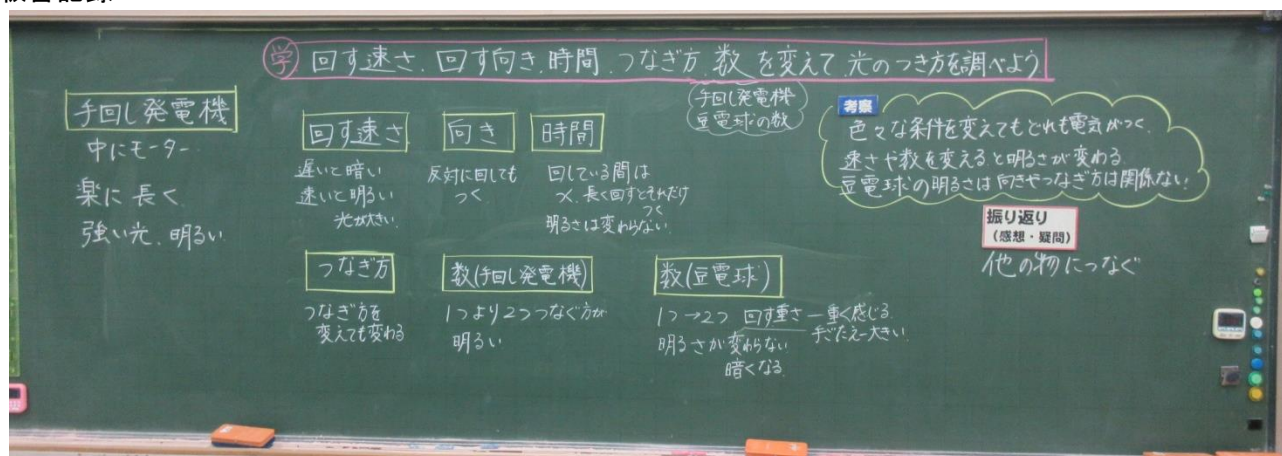 学 回す速さ、回す向き、時間、つなぎ方、数を変えて光のつき方を調べよう
手回し発電機
豆電球の数
手回し発電機
中にモーター
楽に長く
強い光、明るい
回す速さ
遅いと暗い
速いと明るい
光が大きい
向き
反対に回しても
つく
時間
回している間は
つく、長く回すとそれだけ
つく
明るさは変わらない
つなぎ方
つなぎ方を
変えても変わる
数(手回し発電機)
1つより2つつなぐ方が
明るい
数(豆電球)
1つ→2つ 回す重さ―重く感じる
手ごたえ―大きい
明るさが変わらない
暗くなる
考察
色々な条件を変えてもどれも電気がつく。
速さや数を変えると明るさが変わる
豆電球の明るさは向きやつなぎ方は関係ない!
振り返り
(感想・疑問)
他の物につなぐ